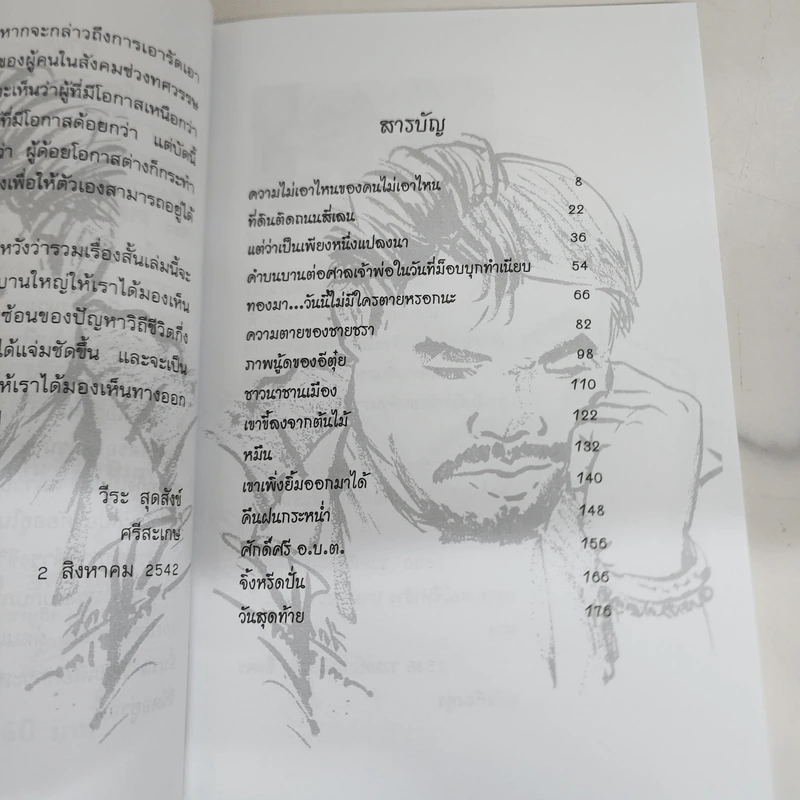 หากจะกล่าวถึงการเอารัดเอา
ของผู้คนในสังคมช่วงทศวรรษ
จะเห็นว่าผู้ที่มีโอกาสเหนือกว่า
ที่มีโอกาสด้อยกว่า แต่บัดนี้
ว่า ผู้ด้อยโอกาสต่างก็กระทำ
งเพื่อให้ตัวเองสามารถอยู่ได้
หวังว่ารวมเรื่องสั้นเล่มนี้จะ
บานใหญ่ให้เราได้มองเห็น
ซ้อนของปัญหาวิถีชีวิตกึ่ง
ได้แจ่มชัดขึ้น และจะเป็น
ห้เราได้มองเห็นทางออก
วีระ สุดสังข์
ศรีสะเกษ
2 สิงหาคม 2542
สารบัญ
ความไม่เอาไหนของคนไม่เอาไหน 8
ที่ดินติดถนนสี่เลน 22
แต่ว่าเป็นเพียงหนึ่งแปลงนา 36
คำบนบานต่อศาลเจ้าพ่อในวันที่ม็อบบุกทำเนียบ 54
ทองมา...วันนี้ไม่มีใครตายหรอกนะ 66
ความตายของชายชรา 82
ภาพนู้ดของอีตุ๋ย 98
ชาวนาชานเมือง 110
เขาขี้ลงจากต้นไม้ 122
หมึน 132
เขาเพิ่งยิ้มออกมาได้ 140
คืนฝนกระหน่ำ 148
ศักดิ์ศรี อ.บ.ต. 156
จิ้งหรีดปั่น 166
วันสุดท้าย 176